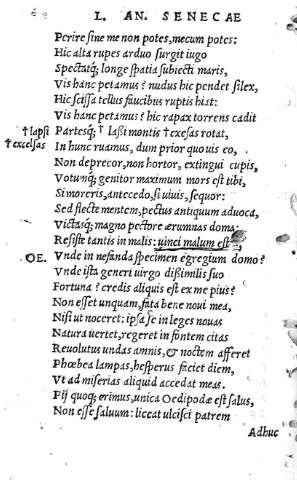 L. AN. SENECAE
Perire sine me non potes, mecum potes:
Hic alta rupes arduo surgit iugo
Spectatq; longe spatia subiecti maris,
Vis hanc petamus? nudus hic pendet silex,
Hic scissa tellus faucibus ruptis hiat:
Vis hanc petamus? hic rapax torrens cadit
† lapsi Partesq; † lassi montis † exesas rotat,
† excelsas In hunc ruamus, dum prior quo uis eo,
Non deprecor, non hortor, extingui cupis,
Votumq; genitor maximum mors est tibi,
Si moreris, antecedo, si uiuis, sequor:
Sed flecte mentem, pectus antiquum aduoca,
Victasq; magno pectore ærumnas doma:
Resiste tantis in malis: uinci malum est.
OE. Vnde in nefanda specimen egregium domo?
Vnde ista generi uirgo dißimilis suo
Fortuna? credis aliquis est ex me pius?
Non esset unquam, fata bene noui mea,
Nisi ut noceret: ipsa se in leges nouas
Natura uertet, regeret in fontem citas
Reuolutus undas amnis, & noctem afferet
Phœbea lampas, hesperus faciet diem,
Vt ad miserias aliquid accedat meas.
Pij quoq; erimus, unica Oedipodæ est salus,
Non esse saluum: liceat ulcisci patrem
Adhuc